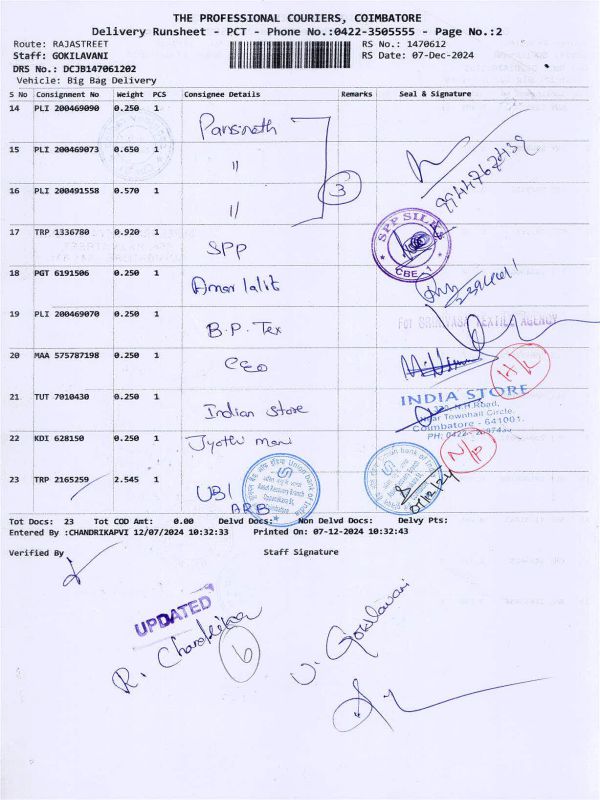 THE PROFESSIONAL COURIERS, COIMBATORE
Delivery Runsheet - PCT - Phone No.:0422-3505555 - Page No.:2
Route: RAJASTREET
RS No.: 1470612
Staff: GOKILAVANI
RS Date: 07-Dec-2024
DRS No.: DCJB147061202
Vehicle: Big Bag Delivery
S No Consignment No Weight PCS Consignee Details Remarks Seal & Signature
14 PLI 200469090 0.250 1
15 PLI 200469073 0.650 1 "
3
16 PLI 200491558 0.570 1 "
17 TRP 1336780 0.920 1 SPP
SPP SILKS
CBE - 1
18 PGT 6191506 0.250 1 Amar lalit
19 PLI 200469070 0.250 1 B.P. Tex
TEXTILE AGENCY
20 MAA 575787198 0.250 1 CEO
21 TUT 7010430 0.250 1 Indian Store
INDIA STORE
N.H.Road,
Near Townhall Circle,
Coimbatore - 641001.
22 KDI 628150 0.250 1 Jyothi mani
N/P
23 TRP 2165259 2.545 1 UBI
ARB
Union Bank of India
07/12/24
Tot Docs: 23 Tot COD Amt: 0.00 Delvd Docs: Non Delvd Docs: Delvy Pts:
Entered By :CHANDRIKAPVI 12/07/2024 10:32:33 Printed On: 07-12-2024 10:32:43
Verified By Staff Signature
UPDATED
R. Chandrika
6
V. Gokilavani